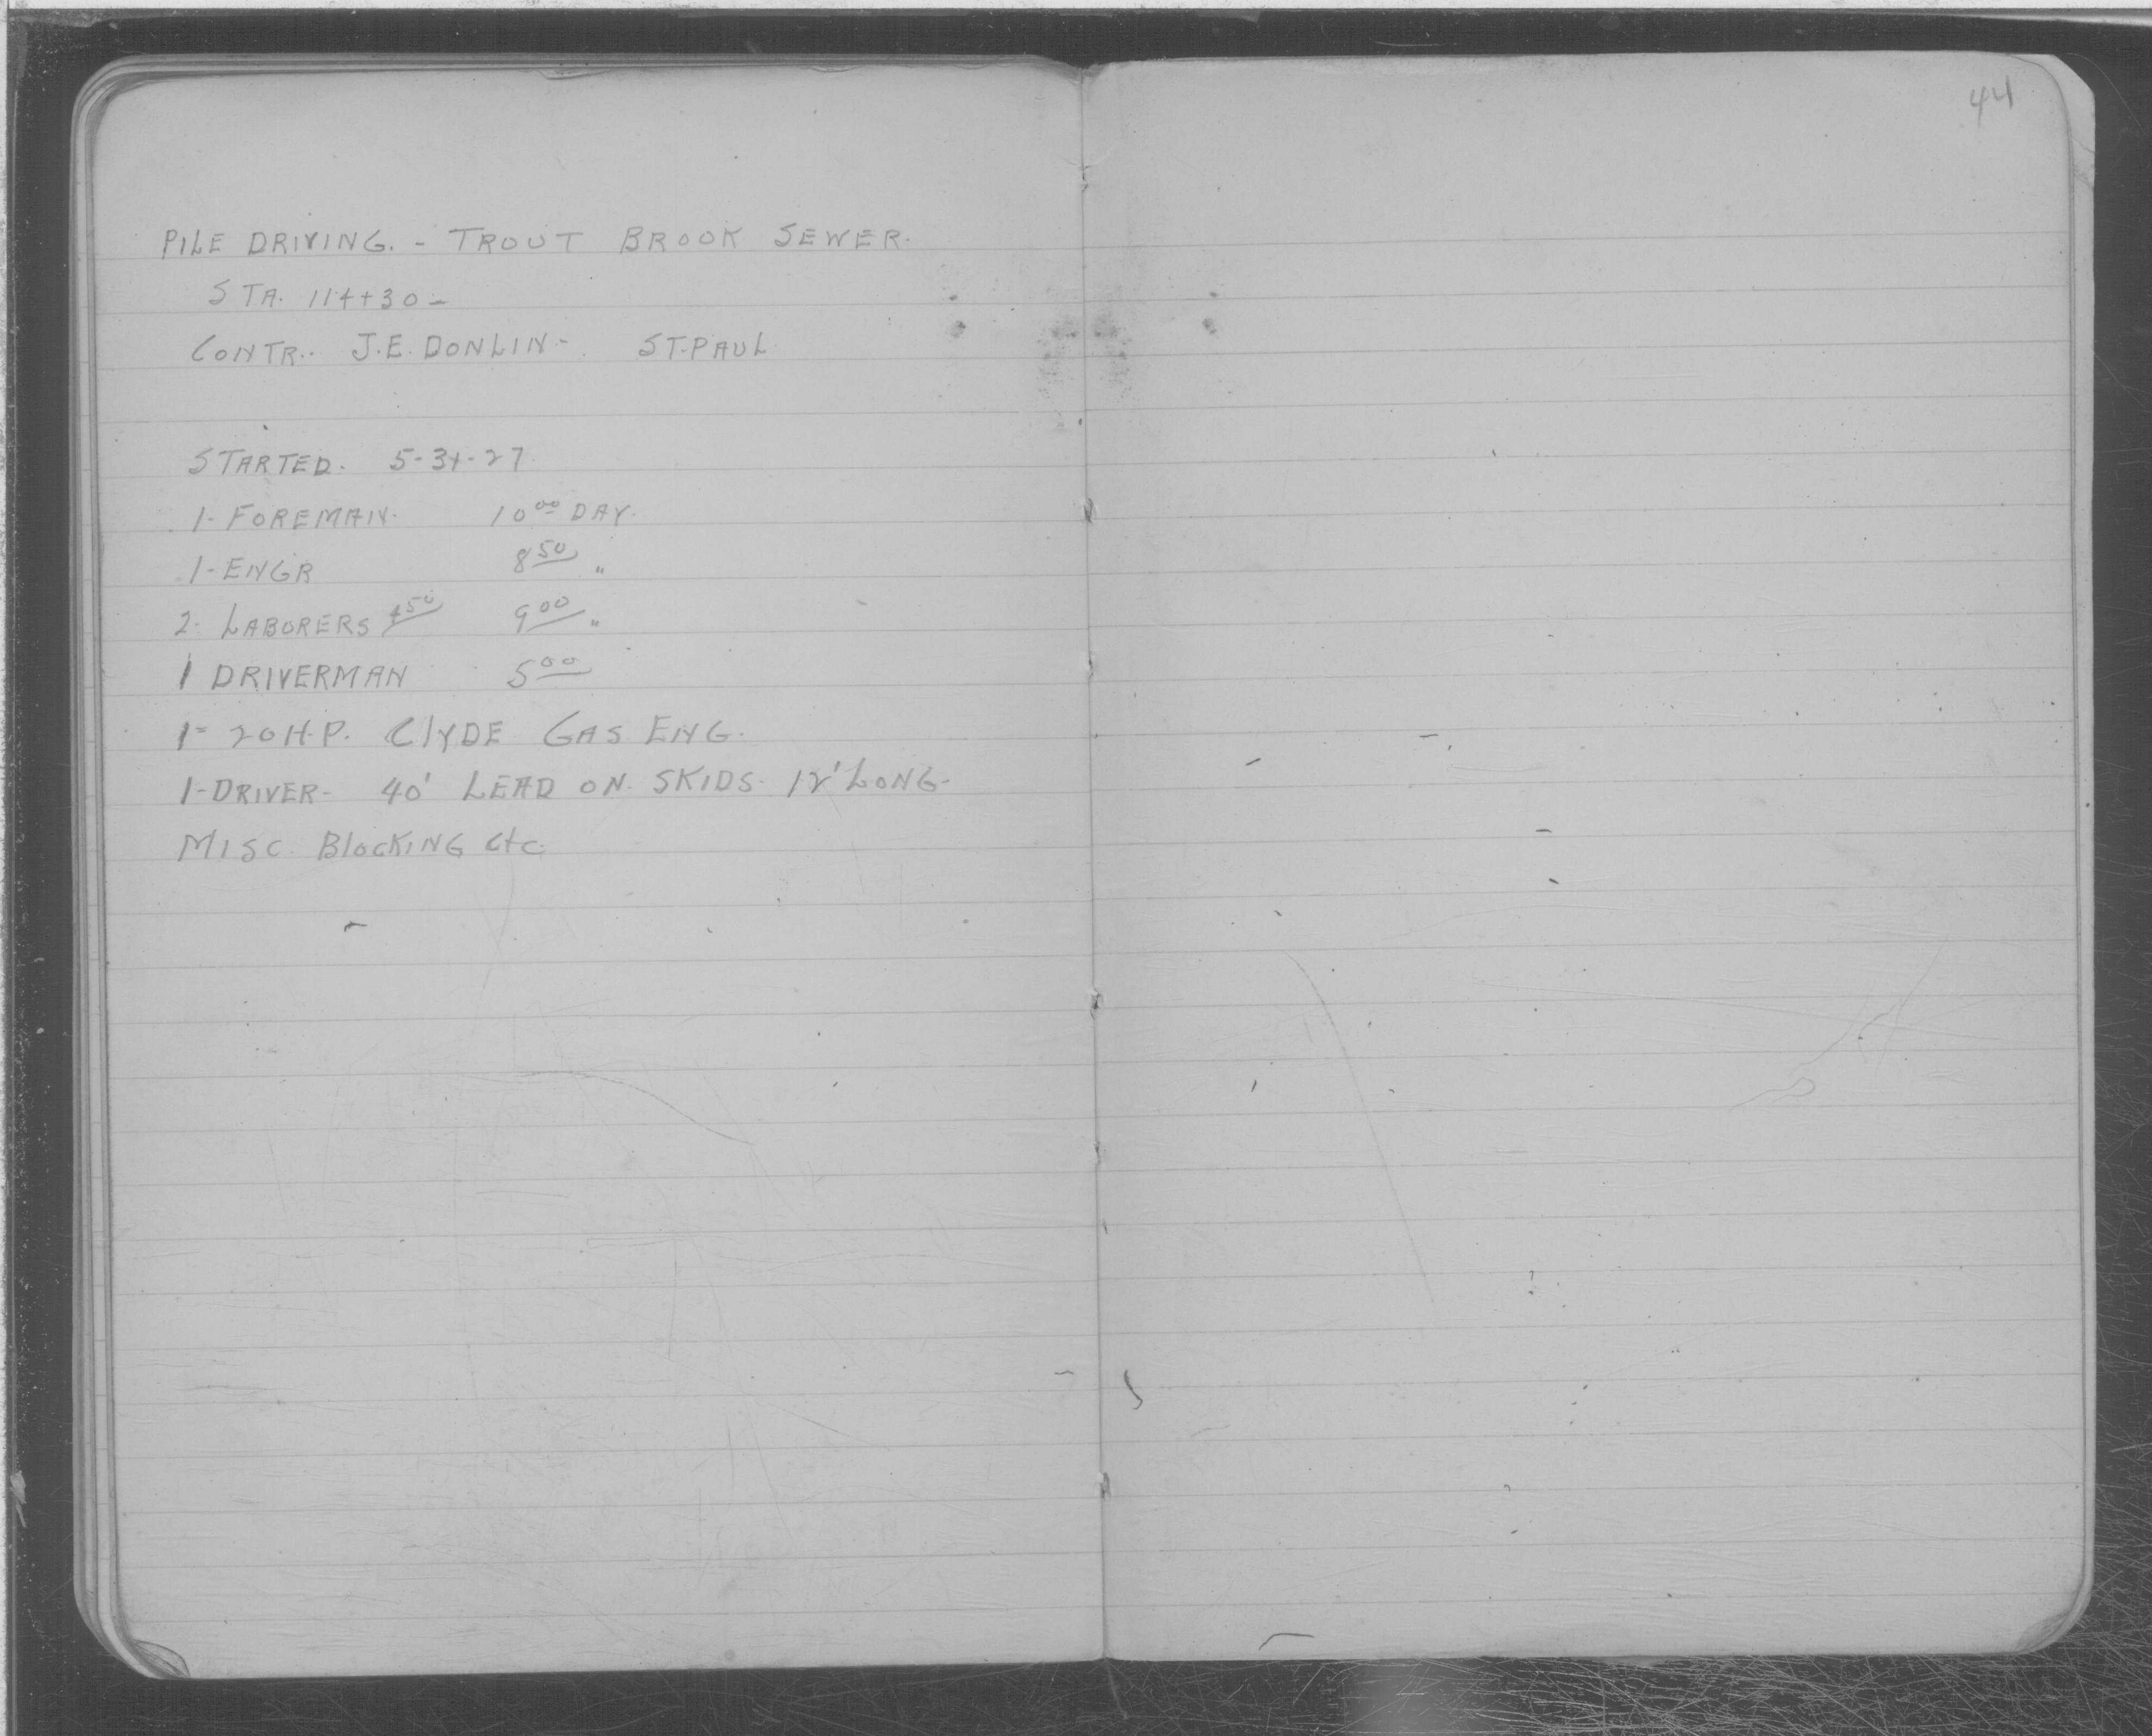 44
PILE DRIVING. - TROUT BROOK SEWER.
STA. 114+30-
CONTR.. J.E. DONLIN- ST. PAUL
STARTED. 5-31-27
1- FOREMAN. 10 00 DAY.
1- ENGR 8 50 "
2. LABORERS 4 50 9 00 "
1 DRIVERMAN 5 00
1- 20 H.P. ClYDE GAS ENG.
1-DRIVER- 40' LEAD ON SKIDS- 12' LONG-
MISC. BlOCKING etc.